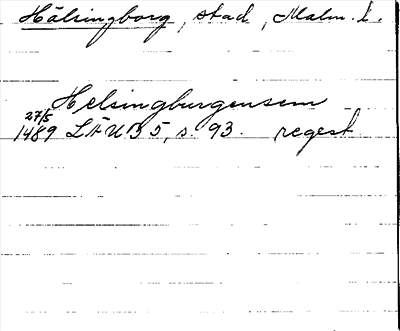 Hälsingborg, stad, Malm. l.
Helsingburgensem
27/5
1489 LÄUB 5, s. 93. regest